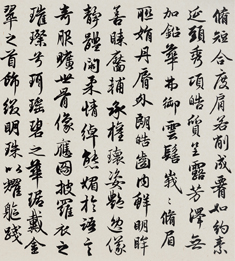 脩短合度肩若削成腰如約素
延頸秀項皓質呈露芳澤無
加鉛華弗御雲髻峩峩脩眉
聯娟丹脣外朗皓齒內鮮明眸
善睞靨輔承權瓌姿艷逸儀
靜體閑柔情綽態媚於語言
奇服曠世骨像應圖披羅衣之
璀璨兮珥瑤碧之華琚戴金
翠之首飾綴明珠以耀軀踐